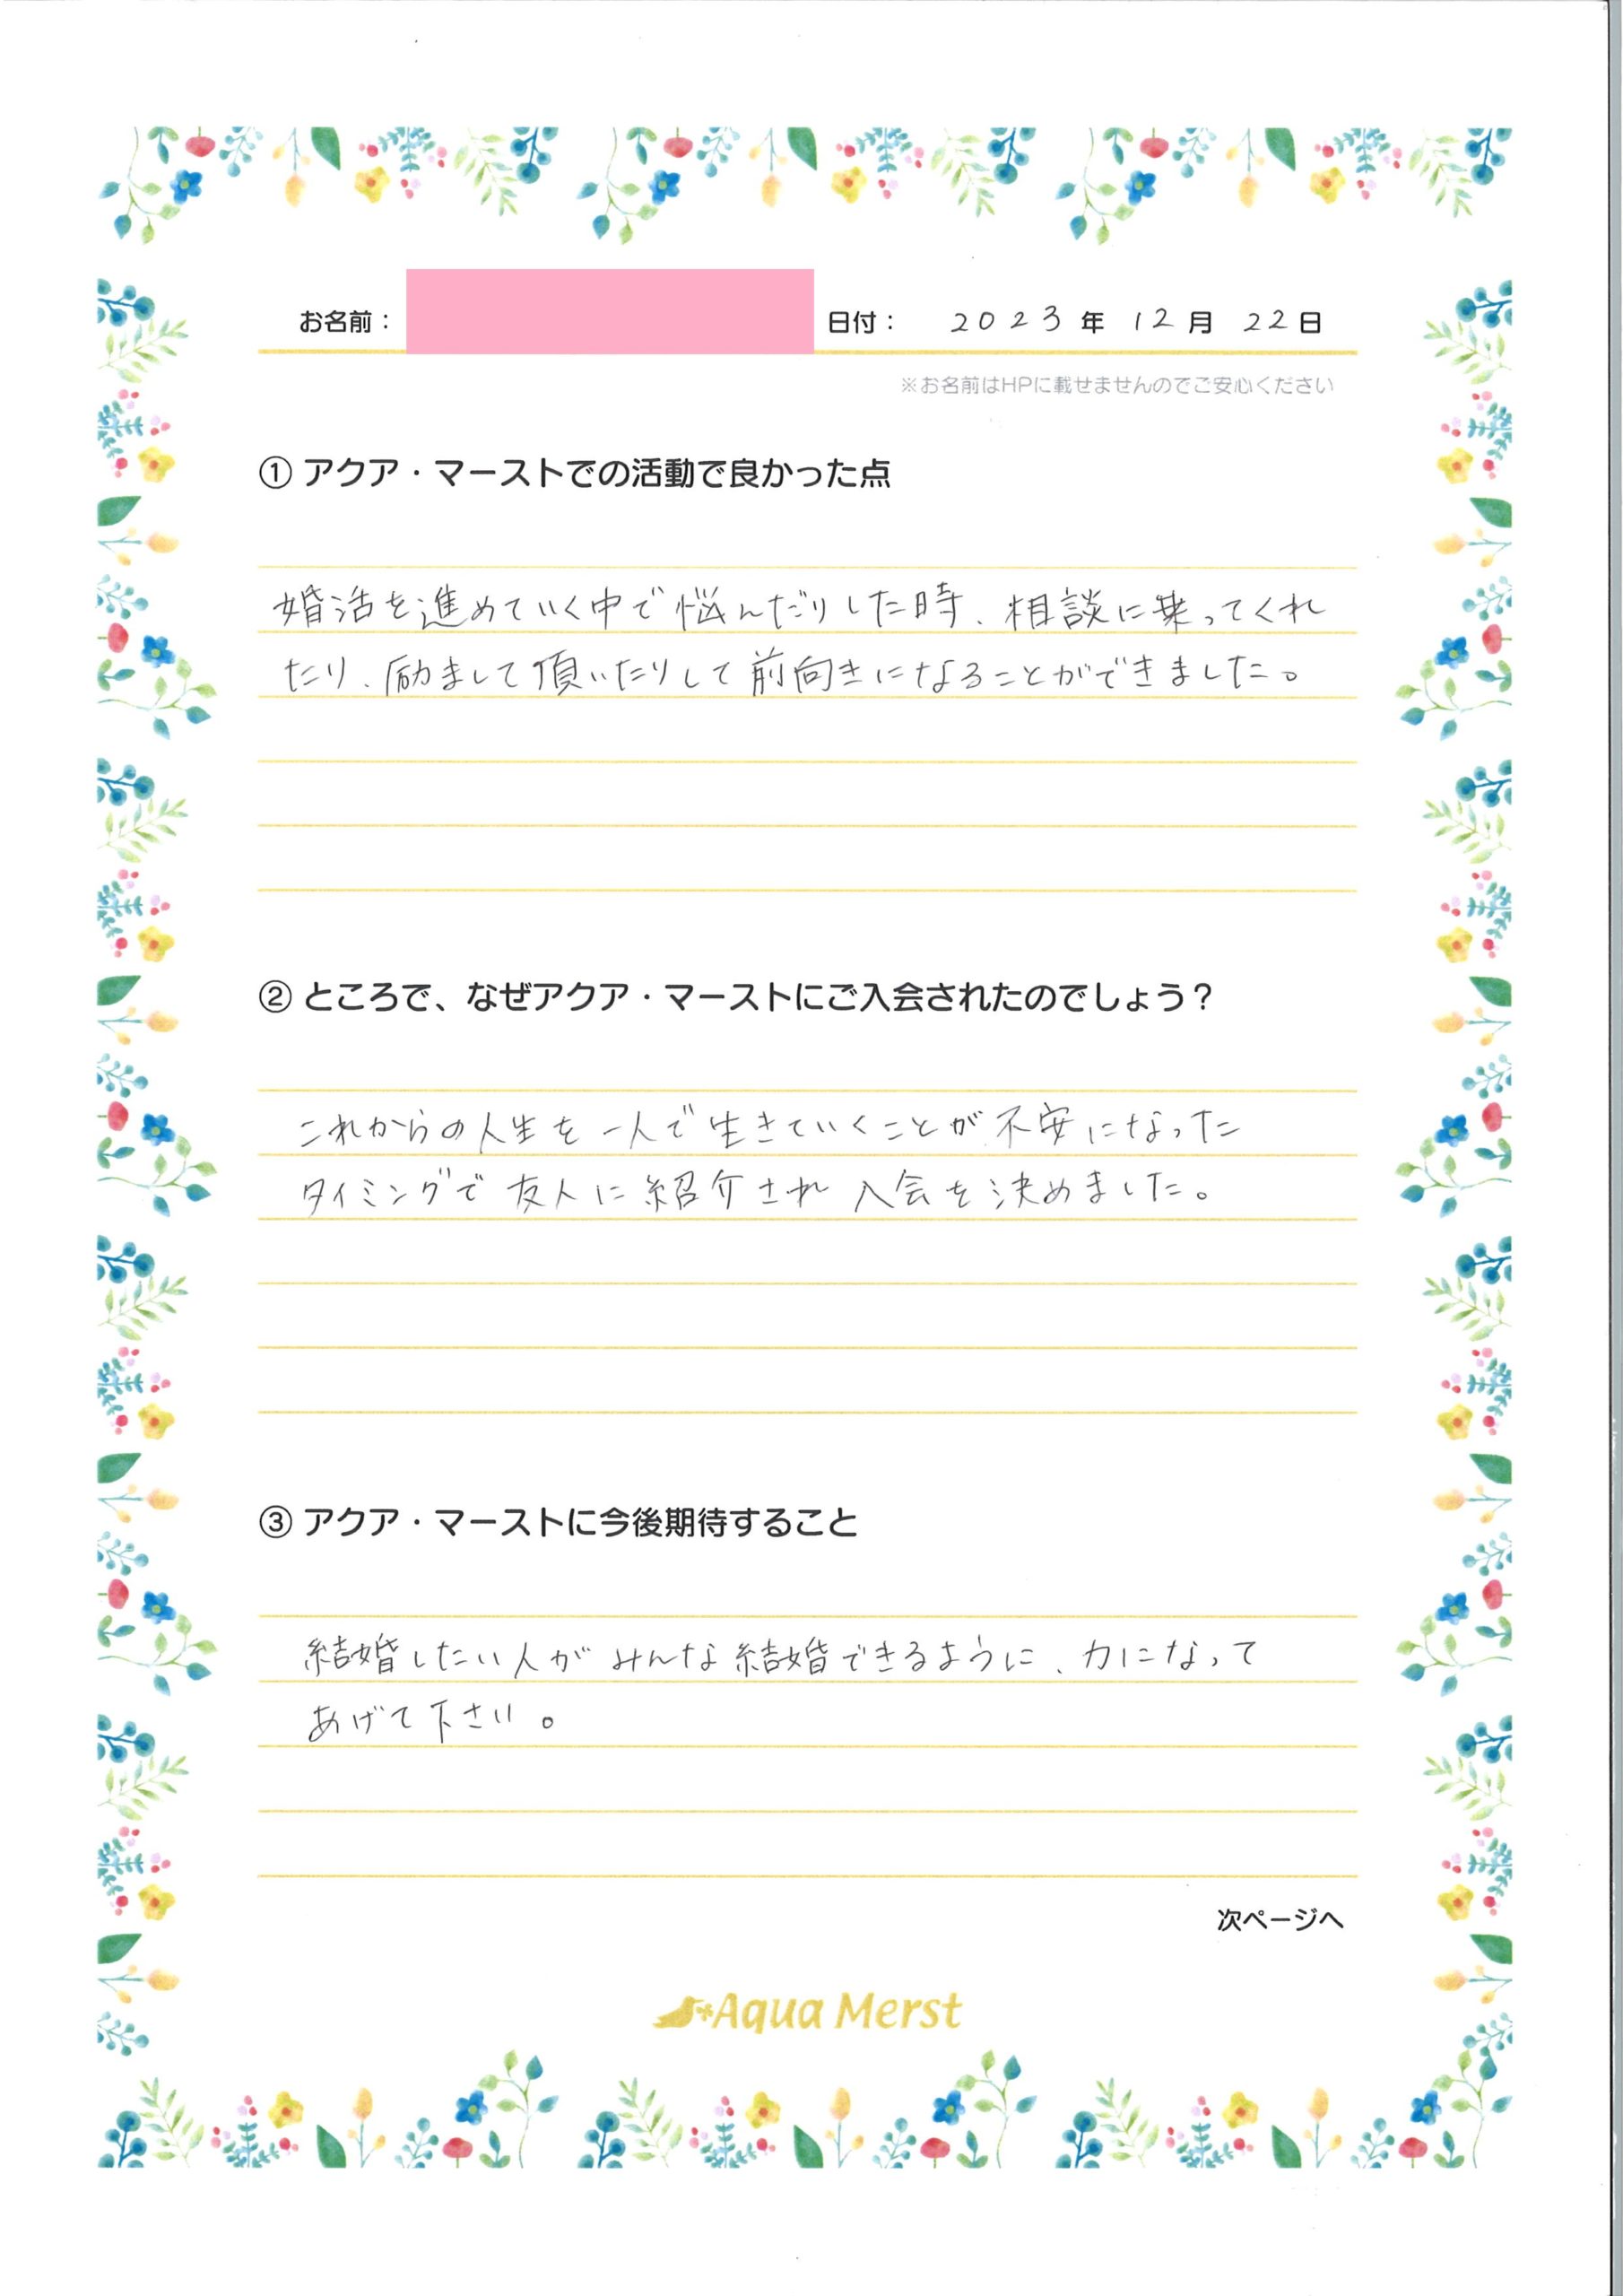 お名前： 日付： 2023年 12月 22日
※お名前はHPに載せませんのでご安心ください
① アクア・マーストでの活動で良かった点
婚活を進めていく中で悩んだりした時、相談に乗ってくれ
たり、励まして頂いたりして前向きになることができました。
② ところで、なぜアクア・マーストにご入会されたのでしょう？
これからの人生を一人で生きていくことが不安になった
タイミングで友人に紹介され入会を決めました。
③ アクア・マーストに今後期待すること
結婚したい人がみんな結婚できるように、力になって
あげて下さい。
次ページへ
Aqua Merst